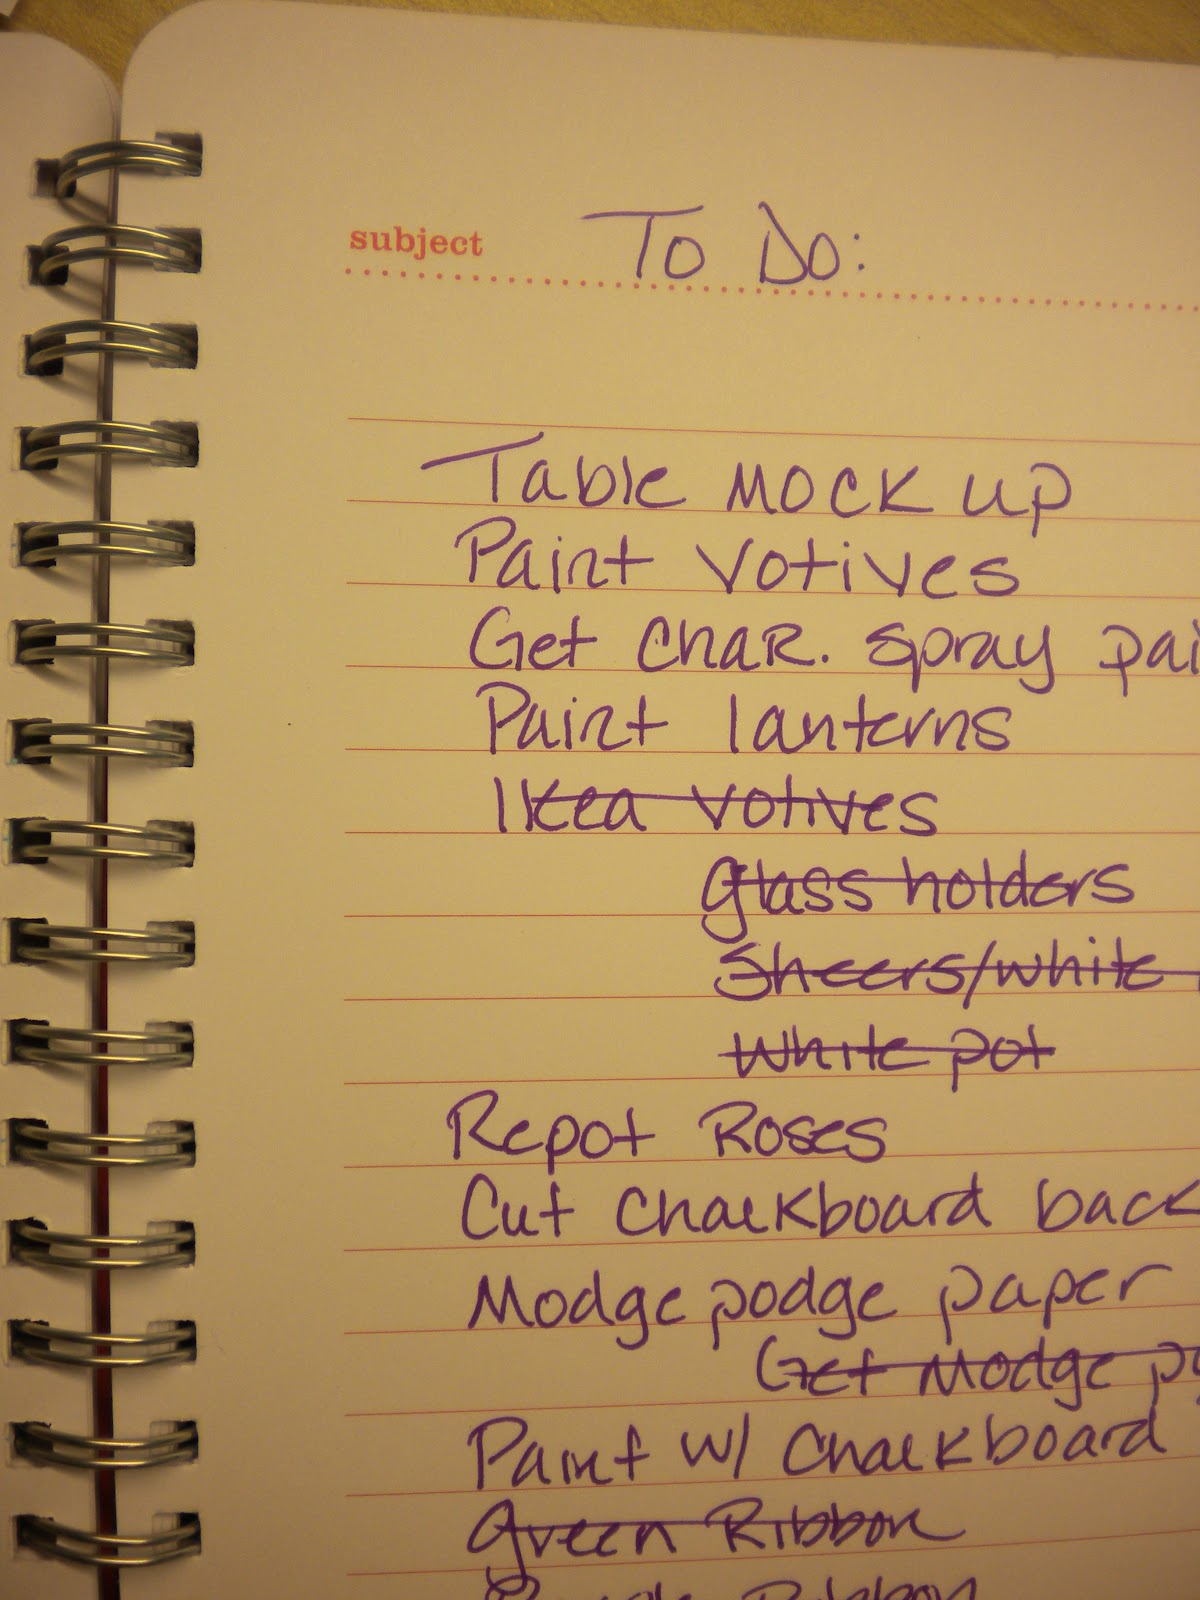 subject To Do:
Table Mock up
Paint Votives
Get Char. spray pai
Paint lanterns
Ikea votives
glass holders
Sheers/white
White pot
Repot Roses
Cut Chalkboard back
Modge podge paper
Get Modge po
Paint w/ Chalkboard
Green Ribbon
Ribbon